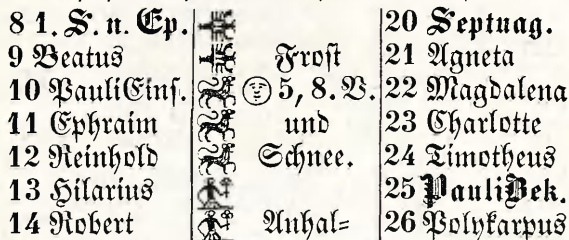 8 1. S. n. Ep. 20 Septuag.
9 Beatus Frost 21 Agneta
10 Pauli Eins. 5, 8. V. 22 Magdalena
11 Ephraim und 23 Charlotte
12 Reinhold Schnee. 24 Timotheus
13 Hilarius 25 Pauli Bek.
14 Robert Anhal= 26 Polykarpus